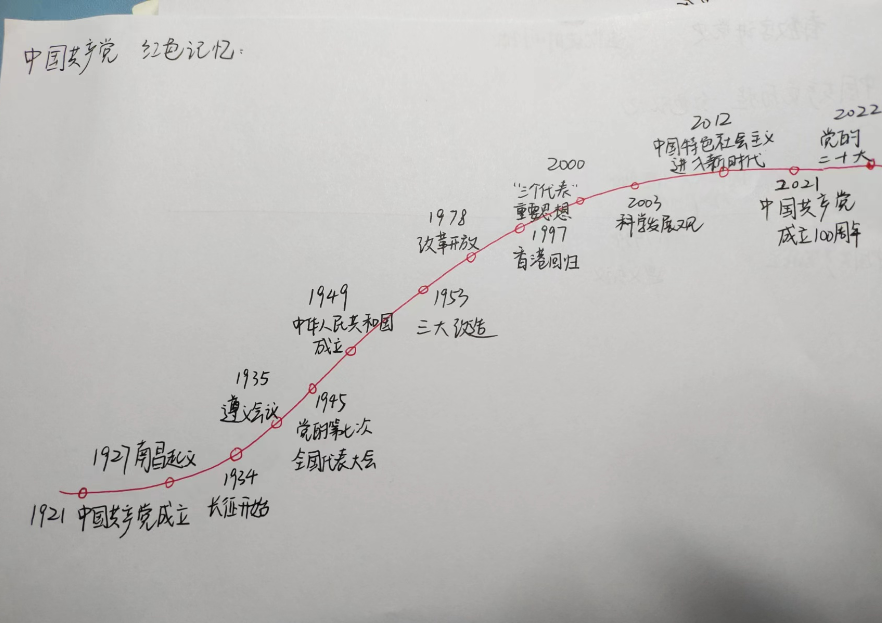 中国共产党 红色记忆:
1921 中国共产党成立
1927 南昌起义
1934
长征开始
1935
遵义会议
1945
党的第七次
全国代表大会
1949
中华人民共和国
成立
1953
三大改造
1978
改革开放
1997
香港回归
2000
"三个代表"
重要思想
2003
科学发展观
2012
中国特色社会主义
进入新时代
2021
中国共产党
成立100周年
2022
党的
二十大